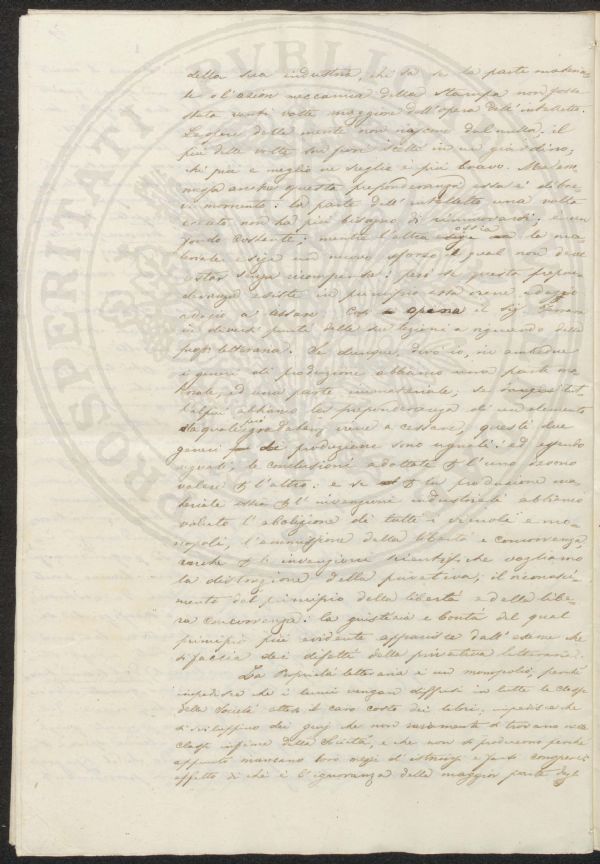 della sua industria, chi sa se la parte materia-
le o l'azion meccanica della Stampa non fosse
stata venti volte maggiore dell'opera dell'intelletto.
Le opere della mente non nascono dal nulla: il
più delle volte son fiori scelti in un giardino;
chi più e meglio ne sceglie è più bravo. Ma am-
messa anche questa preponderanza essa è di bre-
ve momento: la parte dell'intelletto una volta
creata non ha più bisogno di rinnovarsi: è un
fondo costante; mentre l'altra ossia la ma-
teriale esige un nuovo sforzo il quale non deve
restar senza ricompensa: però se questa prepon-
deranza esiste in principio essa viene adagio
adagio a cessare. Così opina il Sig. Ferrara
in diversi punti delle sue lezioni a riguardo della
propr. letteraria. Se dunque, dirò io, in ambedue
i generi di produzione abbiamo una parte ma-
teriale, ed una parte immateriale; se in
abbiamo la preponderanza di un elemento
la quale viene a cessare, questi due
generi di produzione sono uguali: ed essendo
uguali, le conclusioni adottate p l'uno sono
valevoli p l'altro: e se p la produzione ma-
teriale ossia p l'invenzione industriale abbiamo
voluto l'abolizione di tutti i vincoli e mo-
nopoli, l'ammissione della libertà e concorrenza,
anche p le invenzioni scientif. che vogliamo
la distruzione della privativa; il riconosci-
mento del principio della libertà e della libe-
ra concorrenza: la giustizia e bontà del qual
principio più evidente apparisce dall'esame che
si faccia dei difetti della privativa letteraria.
La Proprietà letteraria è un monopolio, perché
impedisce che i lumi vengan diffusi in tutte le classi
della Società atteso il caro costo dei libri: impedisce che
si sviluppino dei genj che non raramente si trovano nelle
classi infime della Società, e che non si producono perché
appunto mancano loro mezzi d'istruirsi e
effetto di che è l'ignoranza della maggior parte degli